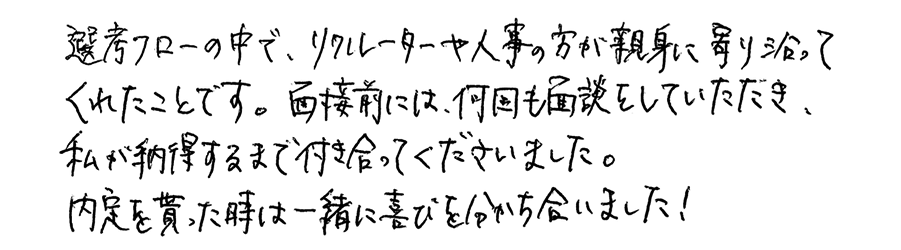 選考フローの中で、リクルーターや人事の方が親身に寄り沿って
くれたことです。面接前には、何回も面談をしていただき、
私が納得するまで付き合ってくださいました。
内定を貰った時は一緒に喜びを分かち合いました!